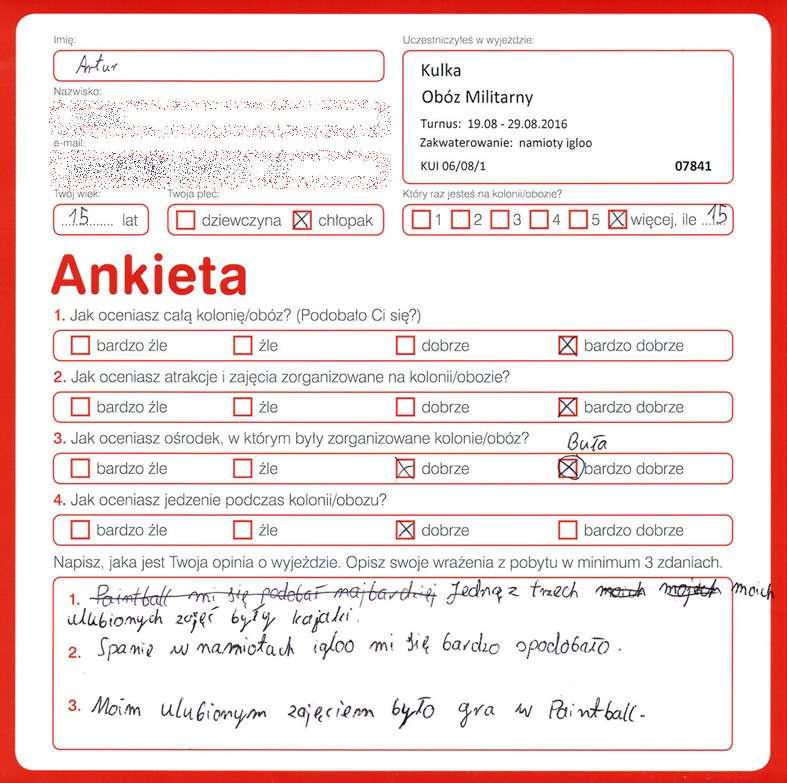 Imię:
Artur
Nazwisko:
e-mail:
Twój wiek:
15 lat
Twoja płeć:
dziewczyna chłopak
Uczestniczyłeś w wyjeździe:
Kulka
Obóz Militarny
Turnus: 19.08 - 29.08.2016
Zakwaterowanie: namioty igloo
KUI 06/08/1 07841
Który raz jesteś na kolonii/obozie?
1 2 3 4 5 więcej, ile 15
Ankieta
1. Jak oceniasz całą kolonię/obóz? (Podobało Ci się?)
bardzo źle źle dobrze bardzo dobrze
2. Jak oceniasz atrakcje i zajęcia zorganizowane na kolonii/obozie?
bardzo źle źle dobrze bardzo dobrze
3. Jak oceniasz ośrodek, w którym były zorganizowane kolonie/obóz?
Buła
bardzo źle źle dobrze bardzo dobrze
4. Jak oceniasz jedzenie podczas kolonii/obozu?
bardzo źle źle dobrze bardzo dobrze
Napisz, jaka jest Twoja opinia o wyjeździe. Opisz swoje wrażenia z pobytu w minimum 3 zdaniach.
1. Paintball mi się podobał najbardziej Jedną z trzech moich moich moich
ulubionych zajęć były kajaki.
2. Spanie w namiotach igloo mi się bardzo spodobało.
3. Moim ulubionym zajęciem było gra w Paintball.